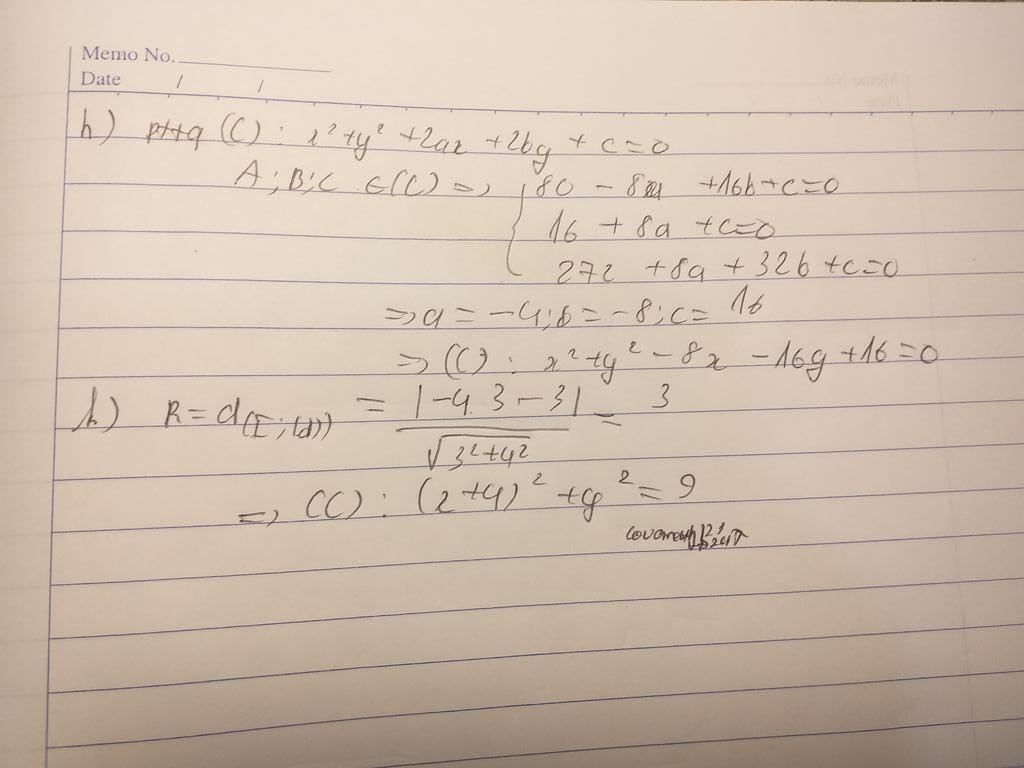 Memo No.
Date / /
h) pttq (C) : x² + y² + 2ax + 2by + c = 0
A ; B ; C ∈ (C) => { 80 - 8a + 16b + c = 0
16 + 8a + c = 0
272 + 8a + 32b + c = 0
=> a = -4 ; b = -8 ; c = 16
=> (C) : x² + y² - 8x - 16y + 16 = 0
k) R = d(I ; (d)) = |-4.3 - 3| / √3² + 4² = 3
=> (C) : (x + 4)² + y² = 9